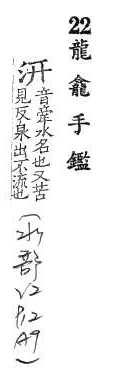 22龍龕手鑑
汧音牽水名也又苦
見反泉出不流也
(水部
V2
P12
A9)